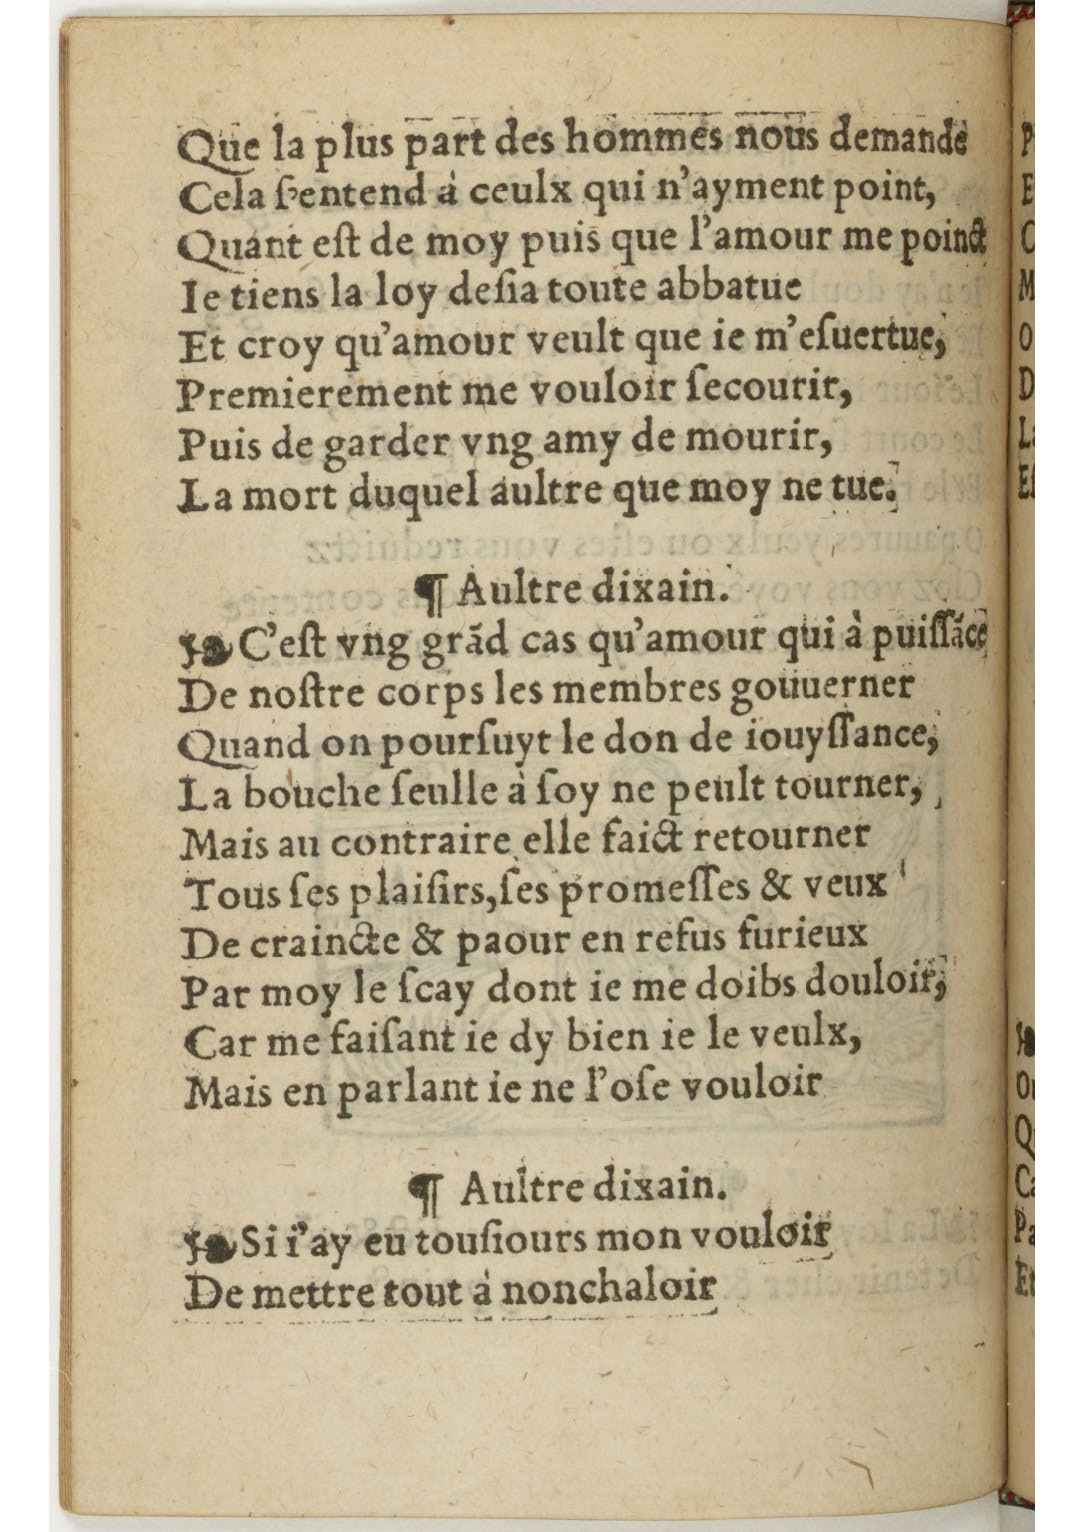 Que la plus part des hommes nous demande
Cela ſ'entend à ceulx qui n'ayment point,
Quant eſt de moy puis que l'amour me poinct
Ie tiens la loy deſia toute abbatue
Et croy qu'amour veult que ie m'eſuertue,
Premierement me vouloir ſecourir,
Puis de garder vng amy de mourir,
La mort duquel aultre que moy ne tue.
¶ Aultre dixain.
❧ C'eſt vng grãd cas qu'amour qui à puiſſãce
De noſtre corps les membres gouuerner
Quand on pourſuyt le don de iouyſſance,
La bouche ſeulle à ſoy ne peult tourner,
Mais au contraire elle faict retourner
Tous ſes plaiſirs, ſes promeſſes & veux
De craincte & paour en refus furieux
Par moy le ſcay dont ie me doibs douloir,
Car me faiſant ie dy bien ie le veulx,
Mais en parlant ie ne l'oſe vouloir
¶ Aultre dixain.
❧ Si i'ay eu touſiours mon vouloir
De mettre tout à nonchaloir